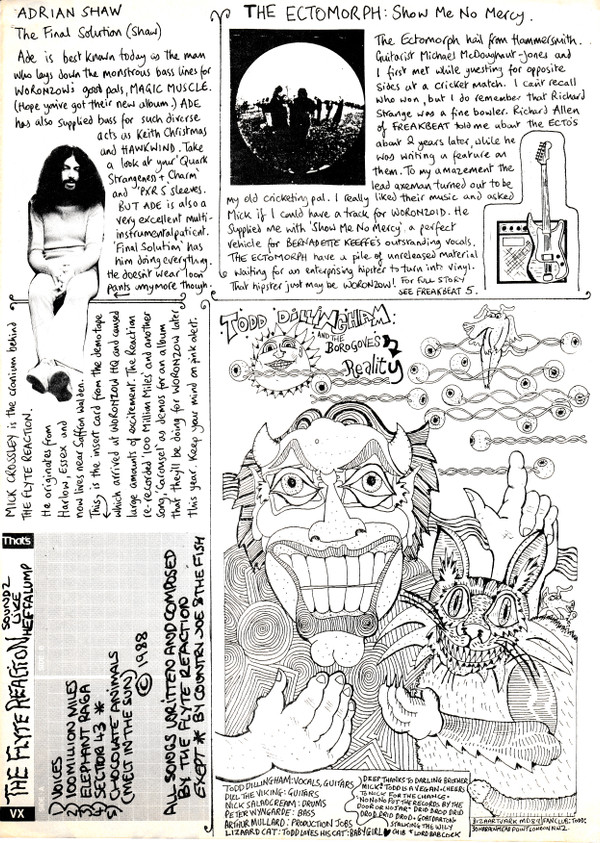 ADRIAN SHAW
The Final Solution (Shaw)
Ade is best known today as the man
who lays down the monstrous bass lines for
WORONZOW's good pals, MAGIC MUSCLE.
(Hope you've got their new album.) ADE
has also supplied bass for such diverse
acts as Keith Christmas
and HAWKWIND. Take
a look at your 'Quark
Strangeness + Charm'
and 'PXR 5' sleeves.
BUT ADE is also a
very excellent multi-
instrumentalpatient.
'Final Solution' has
him doing everything.
He doesn't wear loon
pants anymore though.
THE ECTOMORPH: Show Me No Mercy.
The Ectomorph hail from Hammersmith.
Guitarist Michael McDoughnut-Jones and
I first met while guesting for opposite
sides at a cricket match. I can't recall
who won, but I do remember that Richard
Strange was a fine bowler. Richard Allen
of FREAKBEAT told me about the ECTO'S
about 2 years later, while he
was writing a feature on
them. To my amazement the
lead axeman turned out to be
my old cricketing pal. I really liked their music and asked
Mick if I could have a track for WORONZOID. He
supplied me with 'Show Me No Mercy', a perfect
vehicle for BERNADETTE KEEFFE'S outstanding vocals.
THE ECTOMORPH have a pile of unreleased material
waiting for an enterprising hipster to turn into vinyl.
That hipster just may be WORONZOW! FOR FULL STORY
SEE FREAKBEAT 5.
MICK CROSSLEY is the cranium behind
THE FLYTE REACTION.
He originates from
Harlow, Essex and
now lives near Saffron Walden.
This is the insert card from the demo tape
which arrived at WORONZOW HQ and caused
large amounts of excitement. The Reaction
re-recorded '100 Million Miles' and another
song, 'Carousel' as demos for an album
that they'll be doing for WORONZOW later
this year. Keep your mind on pink alert.
That's
VX
THE FLYTE REACTION
SOUNDZ
LIKE
HEFFALUMP
1) VOICES
2) 100 MILLION MILES
3) ELEPHANT RAGA
4) SECTION 43 *
5) CHOCOLATE ANIMALS
(MELT IN THE SUN)
© 1988
ALL SONGS WRITTEN AND COMPOSED
BY THE FLYTE REACTION
EXEPT * BY COUNTRY JOE & THE FISH
TODD DILLINGHAM:
AND THE
BOROGOVES
Reality
TODD DILLINGHAM: VOCALS, GUITARS
DILL THE VIKING: GUITARS
NICK SALADCREAM: DRUMS
PETER WYNGARDE: BASS
ARTHUR MULLARD: PRODUCTION JOBS
LIZAARD CAT: TODD LOVES HIS CAT: BABY GIRL
DEEP THANKS TO DARLING BROTHER
MILK* TODD IS A VEGAN * CHEERS
TO NICK FOR THE CHANGE *
NO NO NO PUT THE RECORDS BY THE
DOOR OR NOISE * DRID DRID DRID
DRID DRID DRID *
STALKING THE WILY
& LORD BABCOCK
FAN CLUB: TODD: